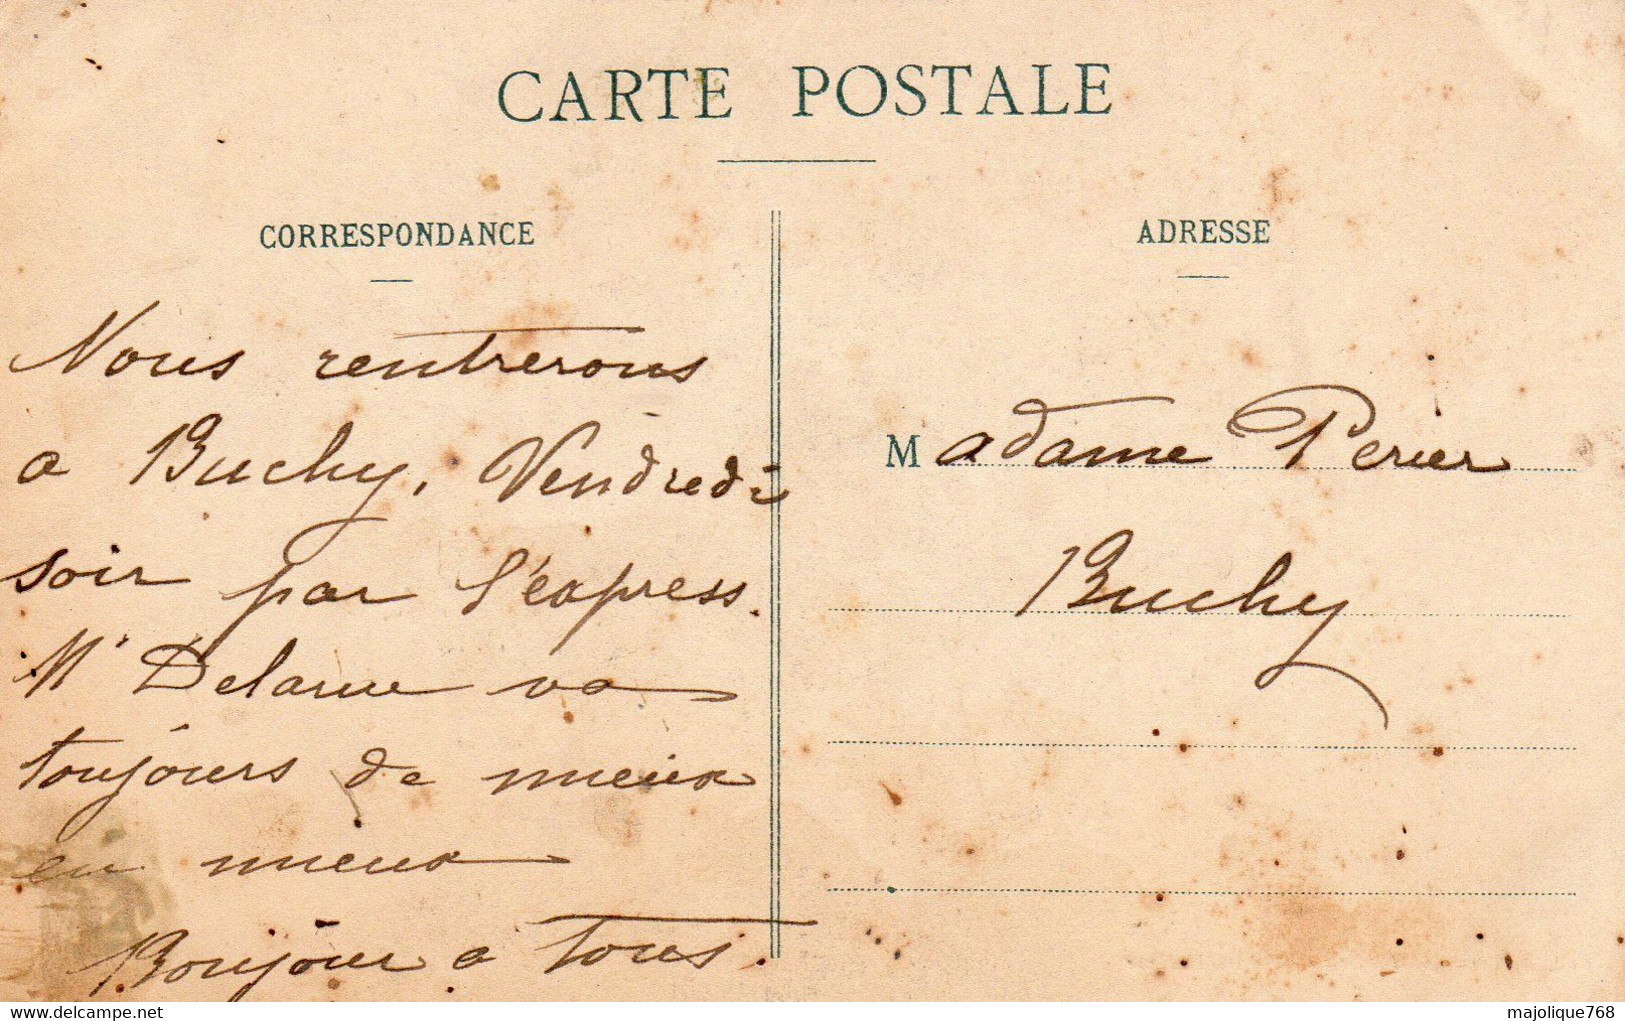 CARTE POSTALE
CORRESPONDANCE
Nous rentrerons
a Buchy, Vendredi
soir par l'express.
Mr Delarue va
toujours de mieux
en mieux
Bonjour a tous.
ADRESSE
Madame Perier
Buchy
delcampe.net
majolique768